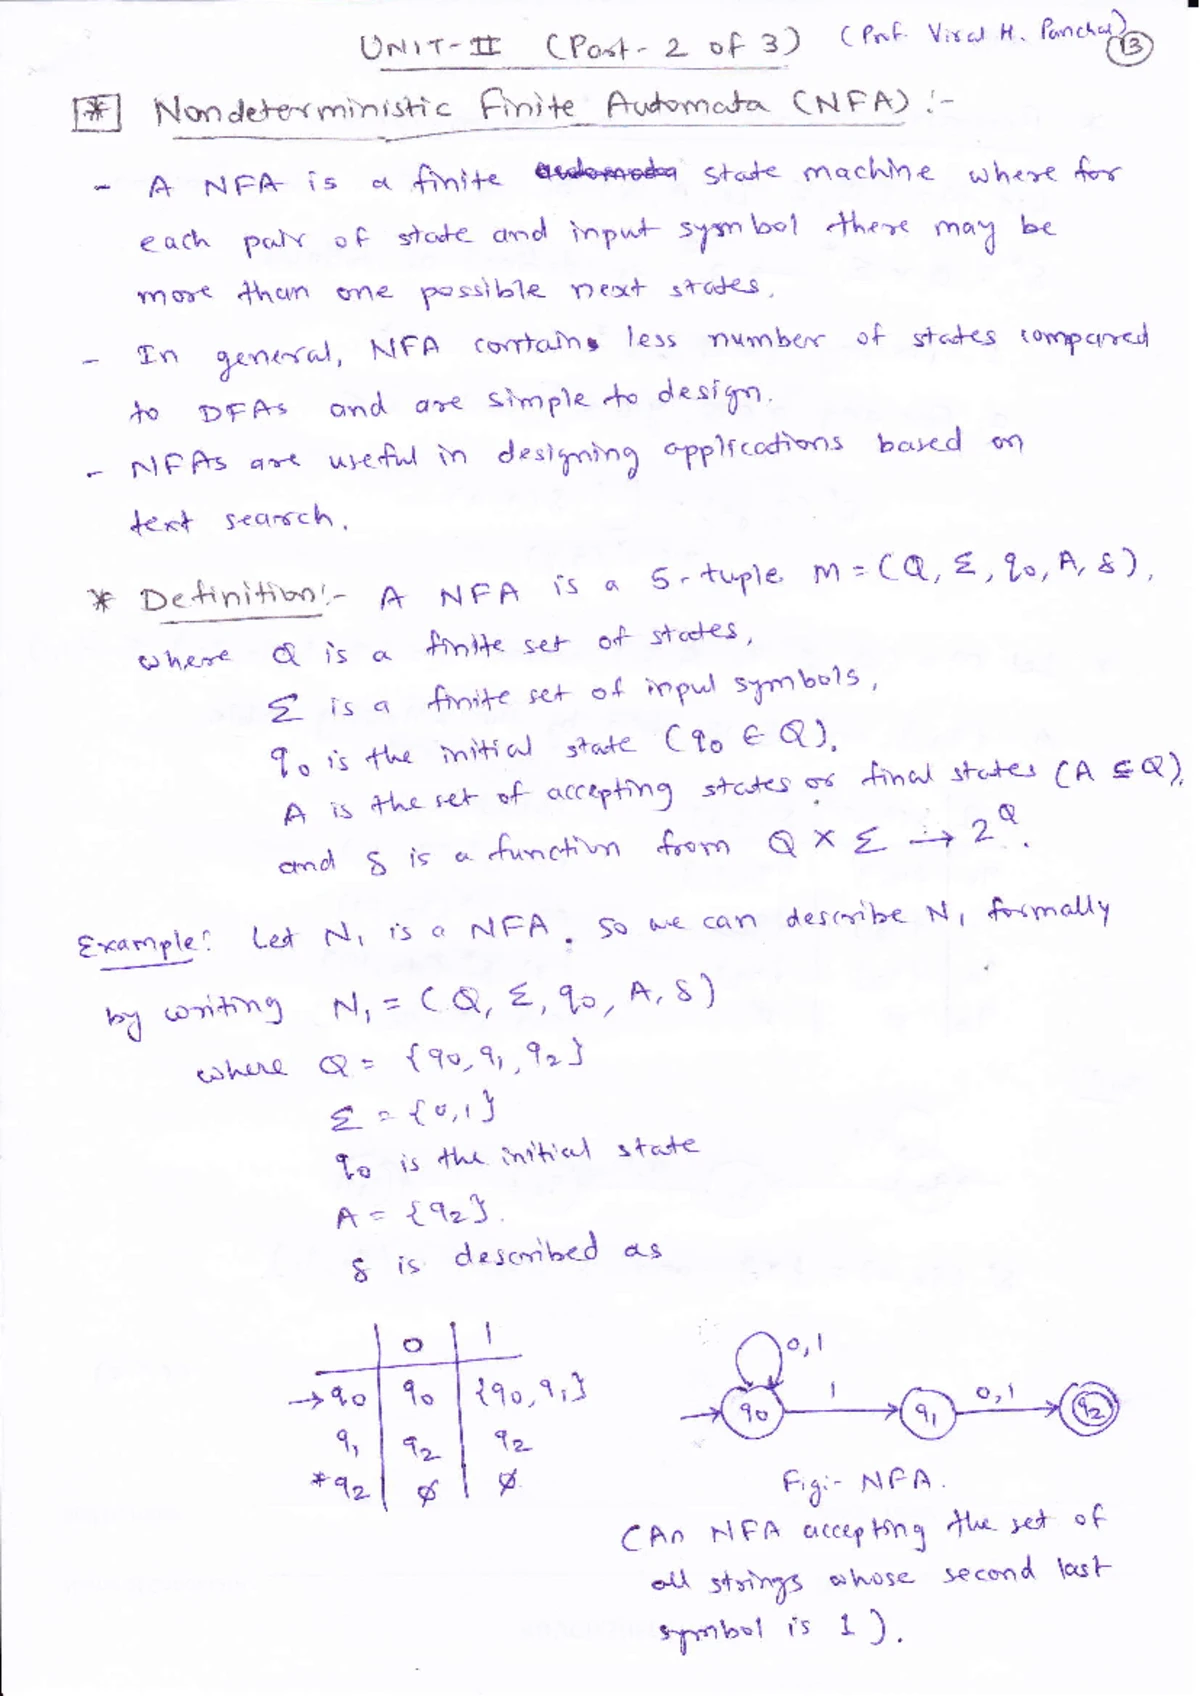 UNIT-II (Part-2 of 3) (Prof. Viral H. Panchal) 13
* Nondeterministic Finite Automata (NFA) :-
- A NFA is a finite automata state machine where for
each pair of state and input symbol there may be
more than one possible next states.
- In general, NFA contains less number of states compared
to DFAs and are simple to design.
- NFAs are useful in designing applications based on
text search.
* Definition:- A NFA is a 5-tuple M = (Q, Σ, q0, A, δ),
where Q is a finite set of states,
Σ is a finite set of input symbols,
q0 is the initial state (q0 ∈ Q),
A is the set of accepting states or final states (A ⊆ Q),
and δ is a function from Q × Σ → 2^Q.
Example: Let N1 is a NFA. So we can describe N1 formally
by writing N1 = (Q, Σ, q0, A, δ)
where Q = {q0, q1, q2}
Σ = {0,1}
q0 is the initial state
A = {q2}.
δ is described as
0 1
→q0 q0 {q0, q1}
q1 q2 q2
*q2 ø ø
0,1
q0 1 q1 0,1 q2
Fig:- NFA.
(An NFA accepting the set of
all strings whose second last
symbol is 1).